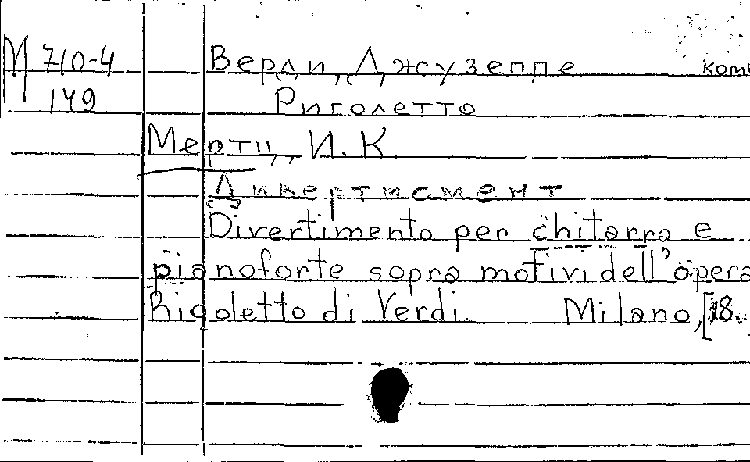 М 710-4 Верди, Джузеппе комп
149 Риголетто
Мертц, И. К.
Дивертисмент
Divertimento per chitarra e
pianoforte sopra motivi dell'opera
Rigoletto di Verdi. Milano, [18